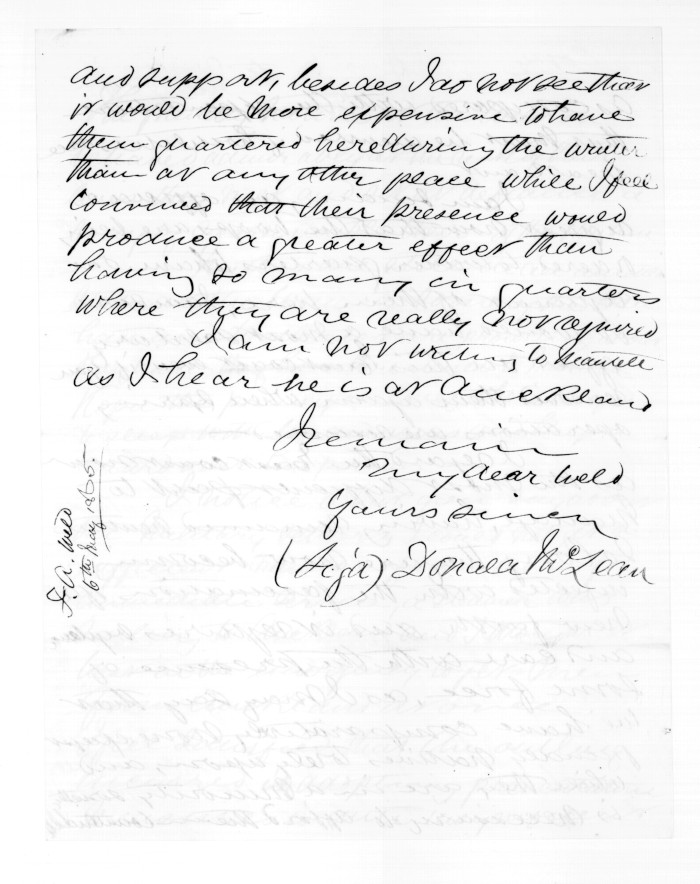 and support, besides I do not see that
it would be more expensive to have
them quartered here during the winter
than at any other peace while I feel
convinced that their presence would
produce a greater effect than
having so many in quarters
where they are really not required
I am not writing to Mantell
as I hear he is at Auckland
I remain
My dear Weld
Yours sincy
(Sigd) Donald McLean
F. A. Weld
6th May 1865.